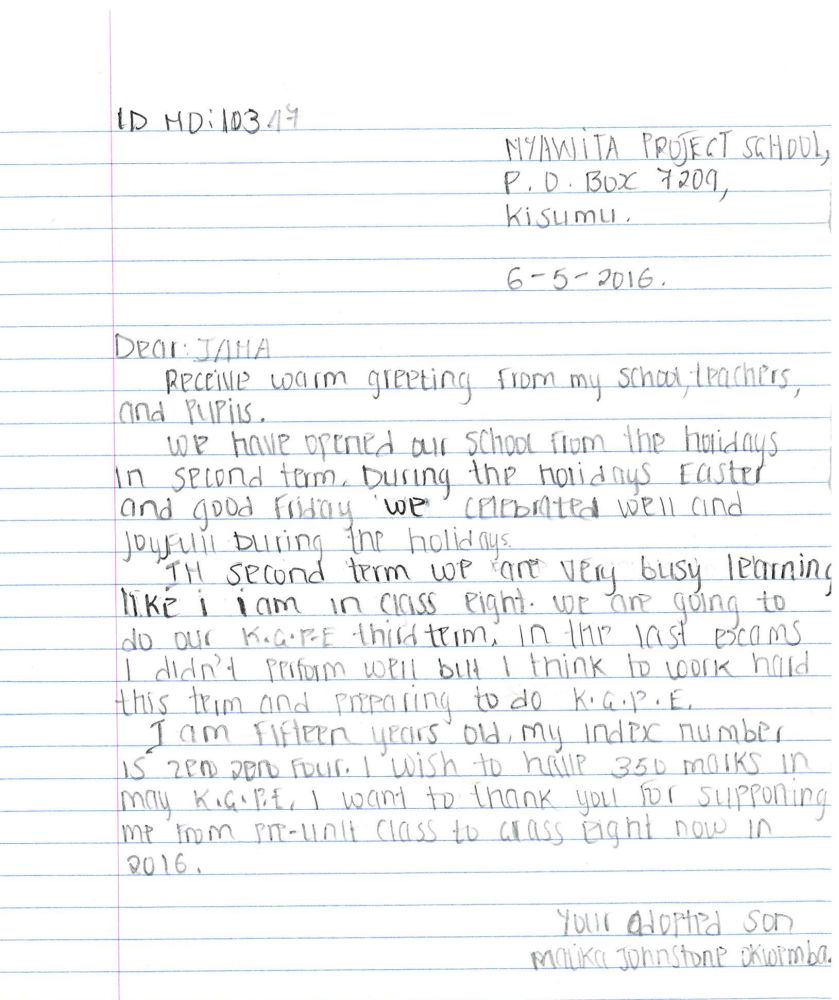 ID NO: 10347
NYAWITA PROJECT SCHOOL,
P. O. BOX 7209,
Kisumu.
6-5-2016.
Dear: JAHA
Receive warm greeting from my school, teachers,
and pupils.
We have opened our school from the holidays
in second term. During the holidays Easter
and good Friday we celebrated well and
joyfull During the holidays.
In second term we are very busy learning
like i i am in class eight. we are going to
do our K.C.P.E third term. in the last excams
I didn't perform well but I think to work hard
this term and preparing to do K.C.P.E.
I am fifteen years old, my index number
is zero zero four. I wish to have 350 marks in
may K.C.P.E. I want to thank you for supporing
me from pre-unit class to class eight now in
2016.
Your adopted son
Malika Johnstone Okwemba.